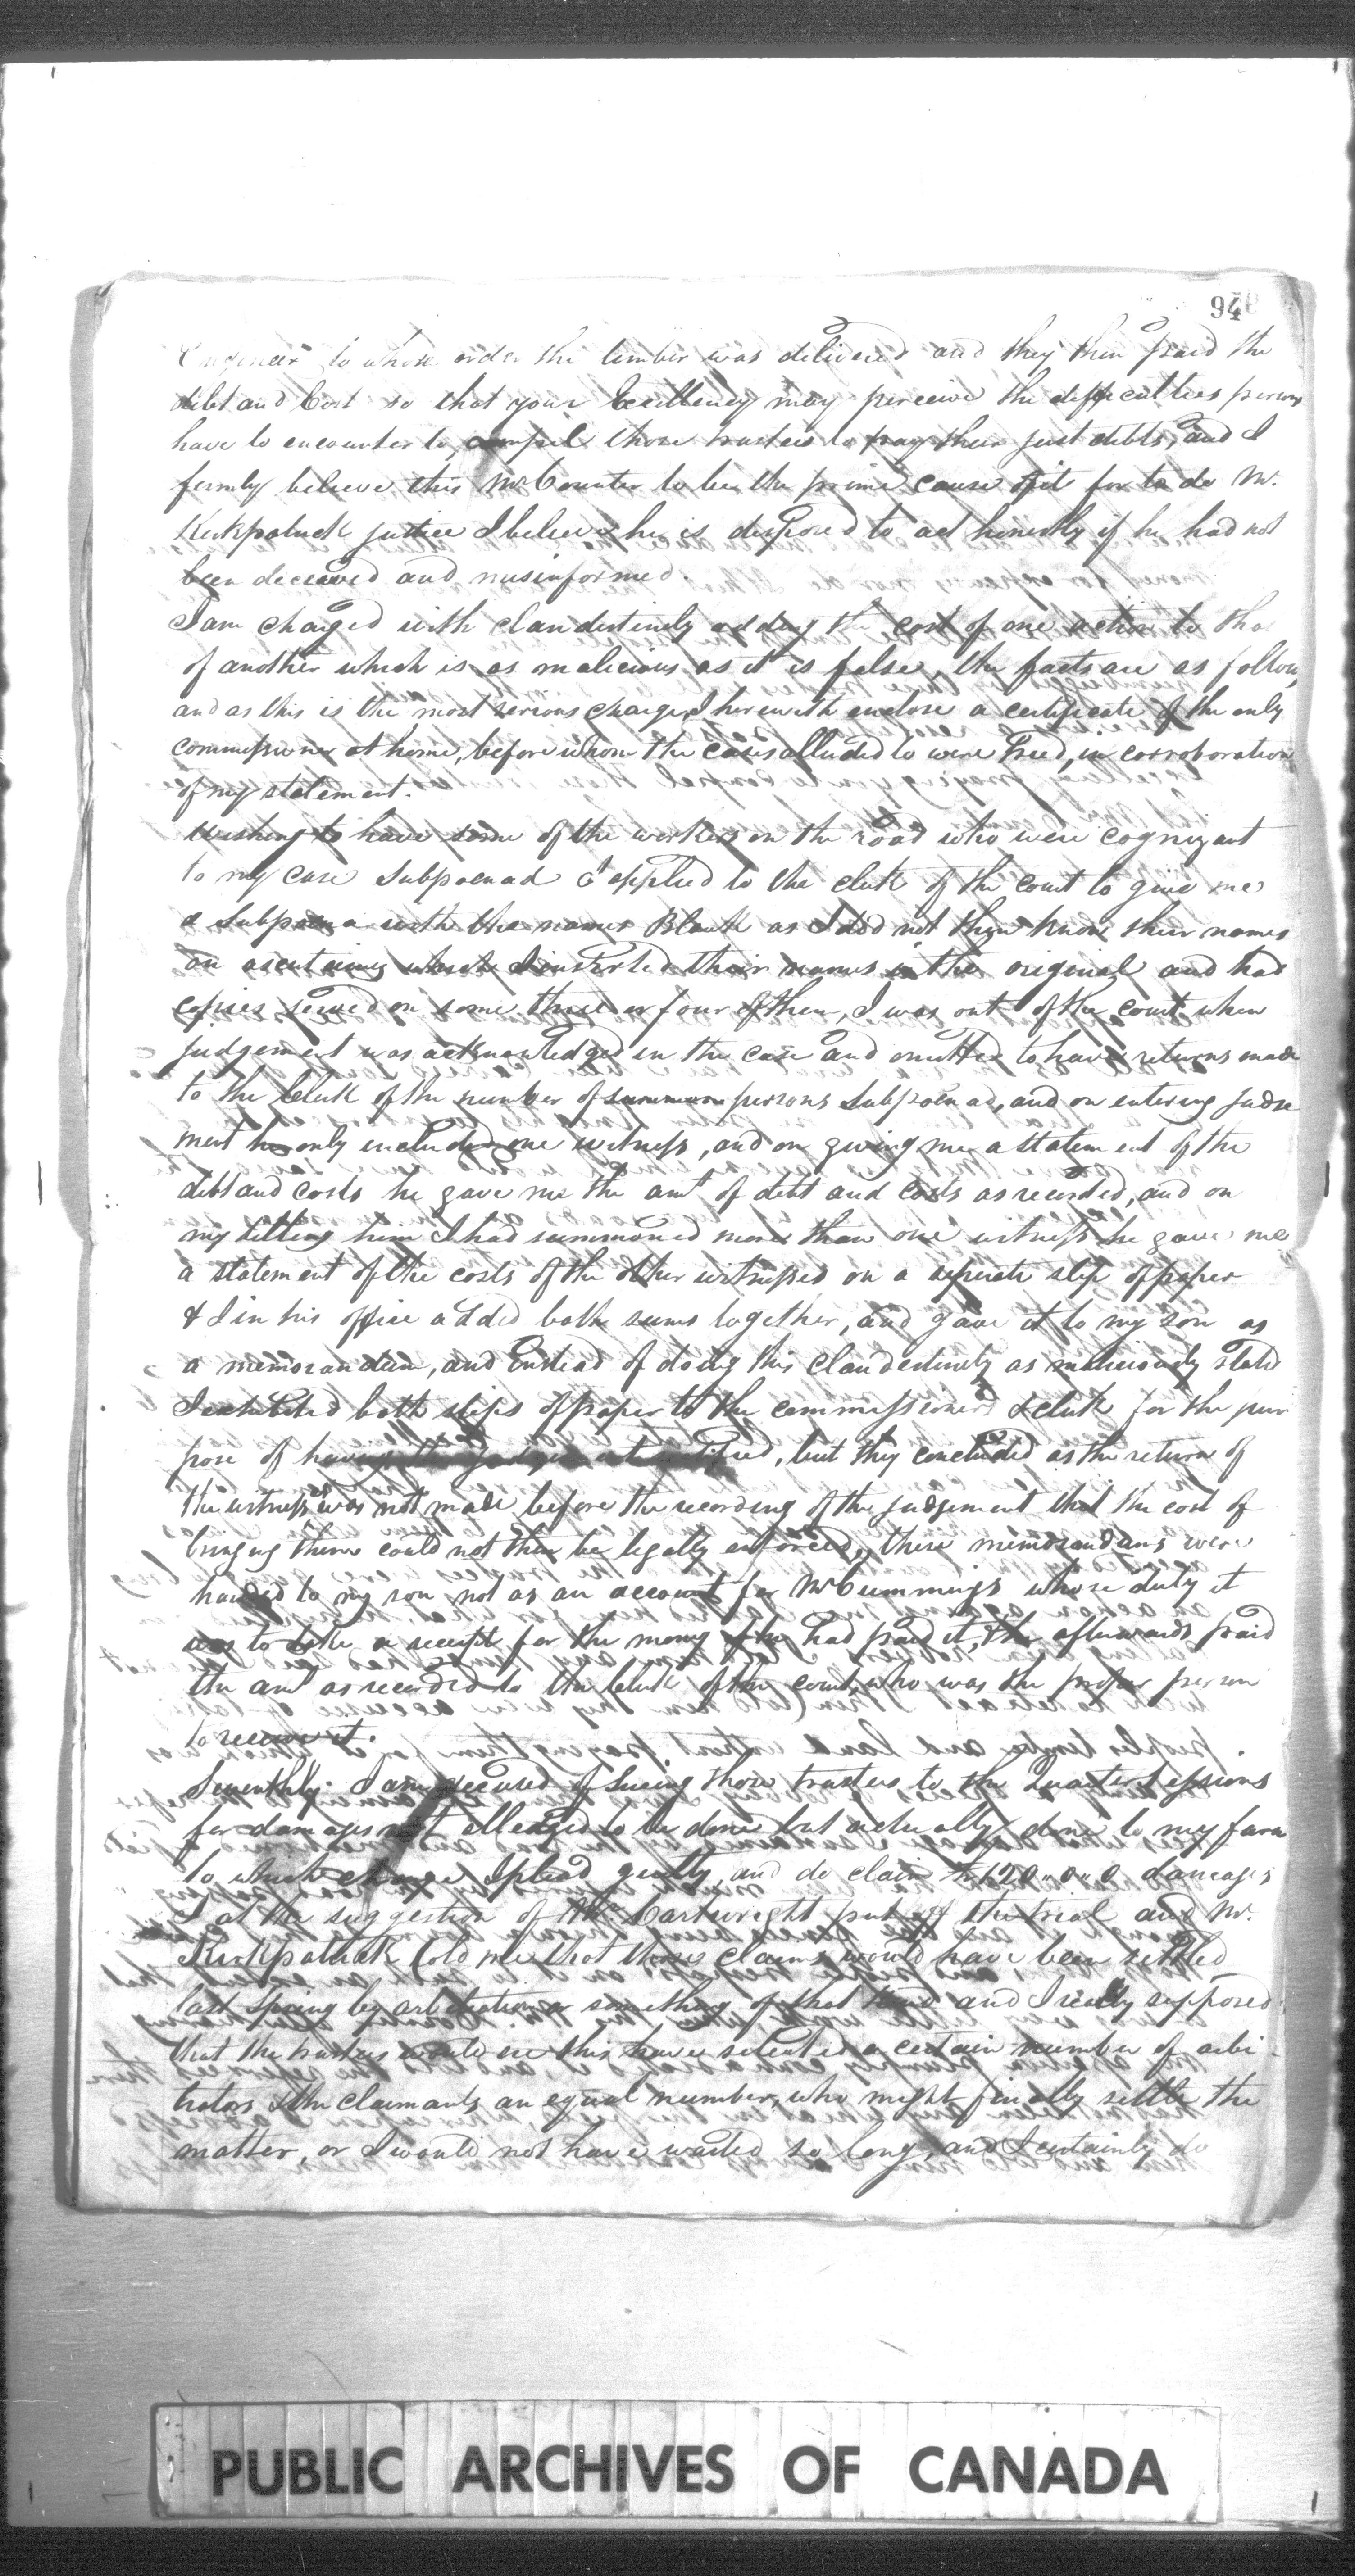 94
Engineer to whose order the timber was delivered and they then paid the
debt and Cost so that your Excellency may perceive the difficulties persons
have to encounter to compel those trustees to pay their just debts, and I
firmly believe this Mr Counter to be the prime cause of it for to do Mr.
Kirkpatrick justice I believe he is disposed to act honestly if he had not
been deceived and misinformed.
I am charged with clandestinely adding the cost of one action to that
of another which is as malicious as it is false, the facts are as follow,
and as this is the most serious charge, I herewith enclose a certificate of the only
commissioner at home, before whom the cases alluded to were tried, in corroboration
of my statement.
Wishing to have some of the workers on the road who were cognizant
to my case Subpoenad I applied to the clerk of the court to give me
a Subpoena with the names Blank as I did not then know their names
on ascertaining which I inserted their names in the original and had
copies served on some three or four of them, I was out of the court when
judgement was acknowledged in the case and omitted to have returns made
to the Clerk of the number of persons Subpoenad, and on entering judge
ment he only included one witness, and on giving me a statement of the
debt and costs he gave me the amt of debt and costs as recorded, and on
my telling him I had summoned more than one witness he gave me
a statement of the costs of the other witnesses on a seperate slip of paper
& I in his office added both sums together, and gave it to my son as
a memorandum, and Instead of doing this Clandestinely as maliciously stated
I exhibited both slips of paper to the commissioners & clerk for the pur
pose of having the judgement, but they concluded as the return of
the witness was not made before the recording of the judgement that the cost of
bringing them could not then be legally enforced, these memorandums were
handed to my son not as an account for Mr Cummings whose duty it
was to take a receipt for the money if he had paid it, afterwards paid
the amt as recorded to the Clerk of the court, who was the proper person
to receive it.
Seventhly. I am accused of Sueing those trustees to the Quarter Sessions
for damages not alledged to be done but actually done to my farm
to which charge I plead guilty, and do claim 120..0..0 damages
I at the suggestion of Mr. Cartwright put off the trial and Mr.
Kirkpatrick told me that those claims would have been settled
last Spring by arbitration or something of that kind and I really supposed
that the trustees would ere this have selected a certain number of arbi
trators & the claimants an equal number, who might finally settle the
matter, or I would not have waited so long, and I certainly do
PUBLIC ARCHIVES OF CANADA